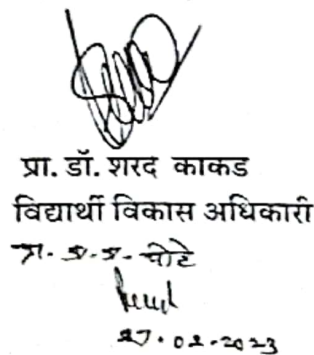 प्रा. डॉ. शरद काकड
विद्यार्थी विकास अधिकारी
प्रा.
27.02.2023